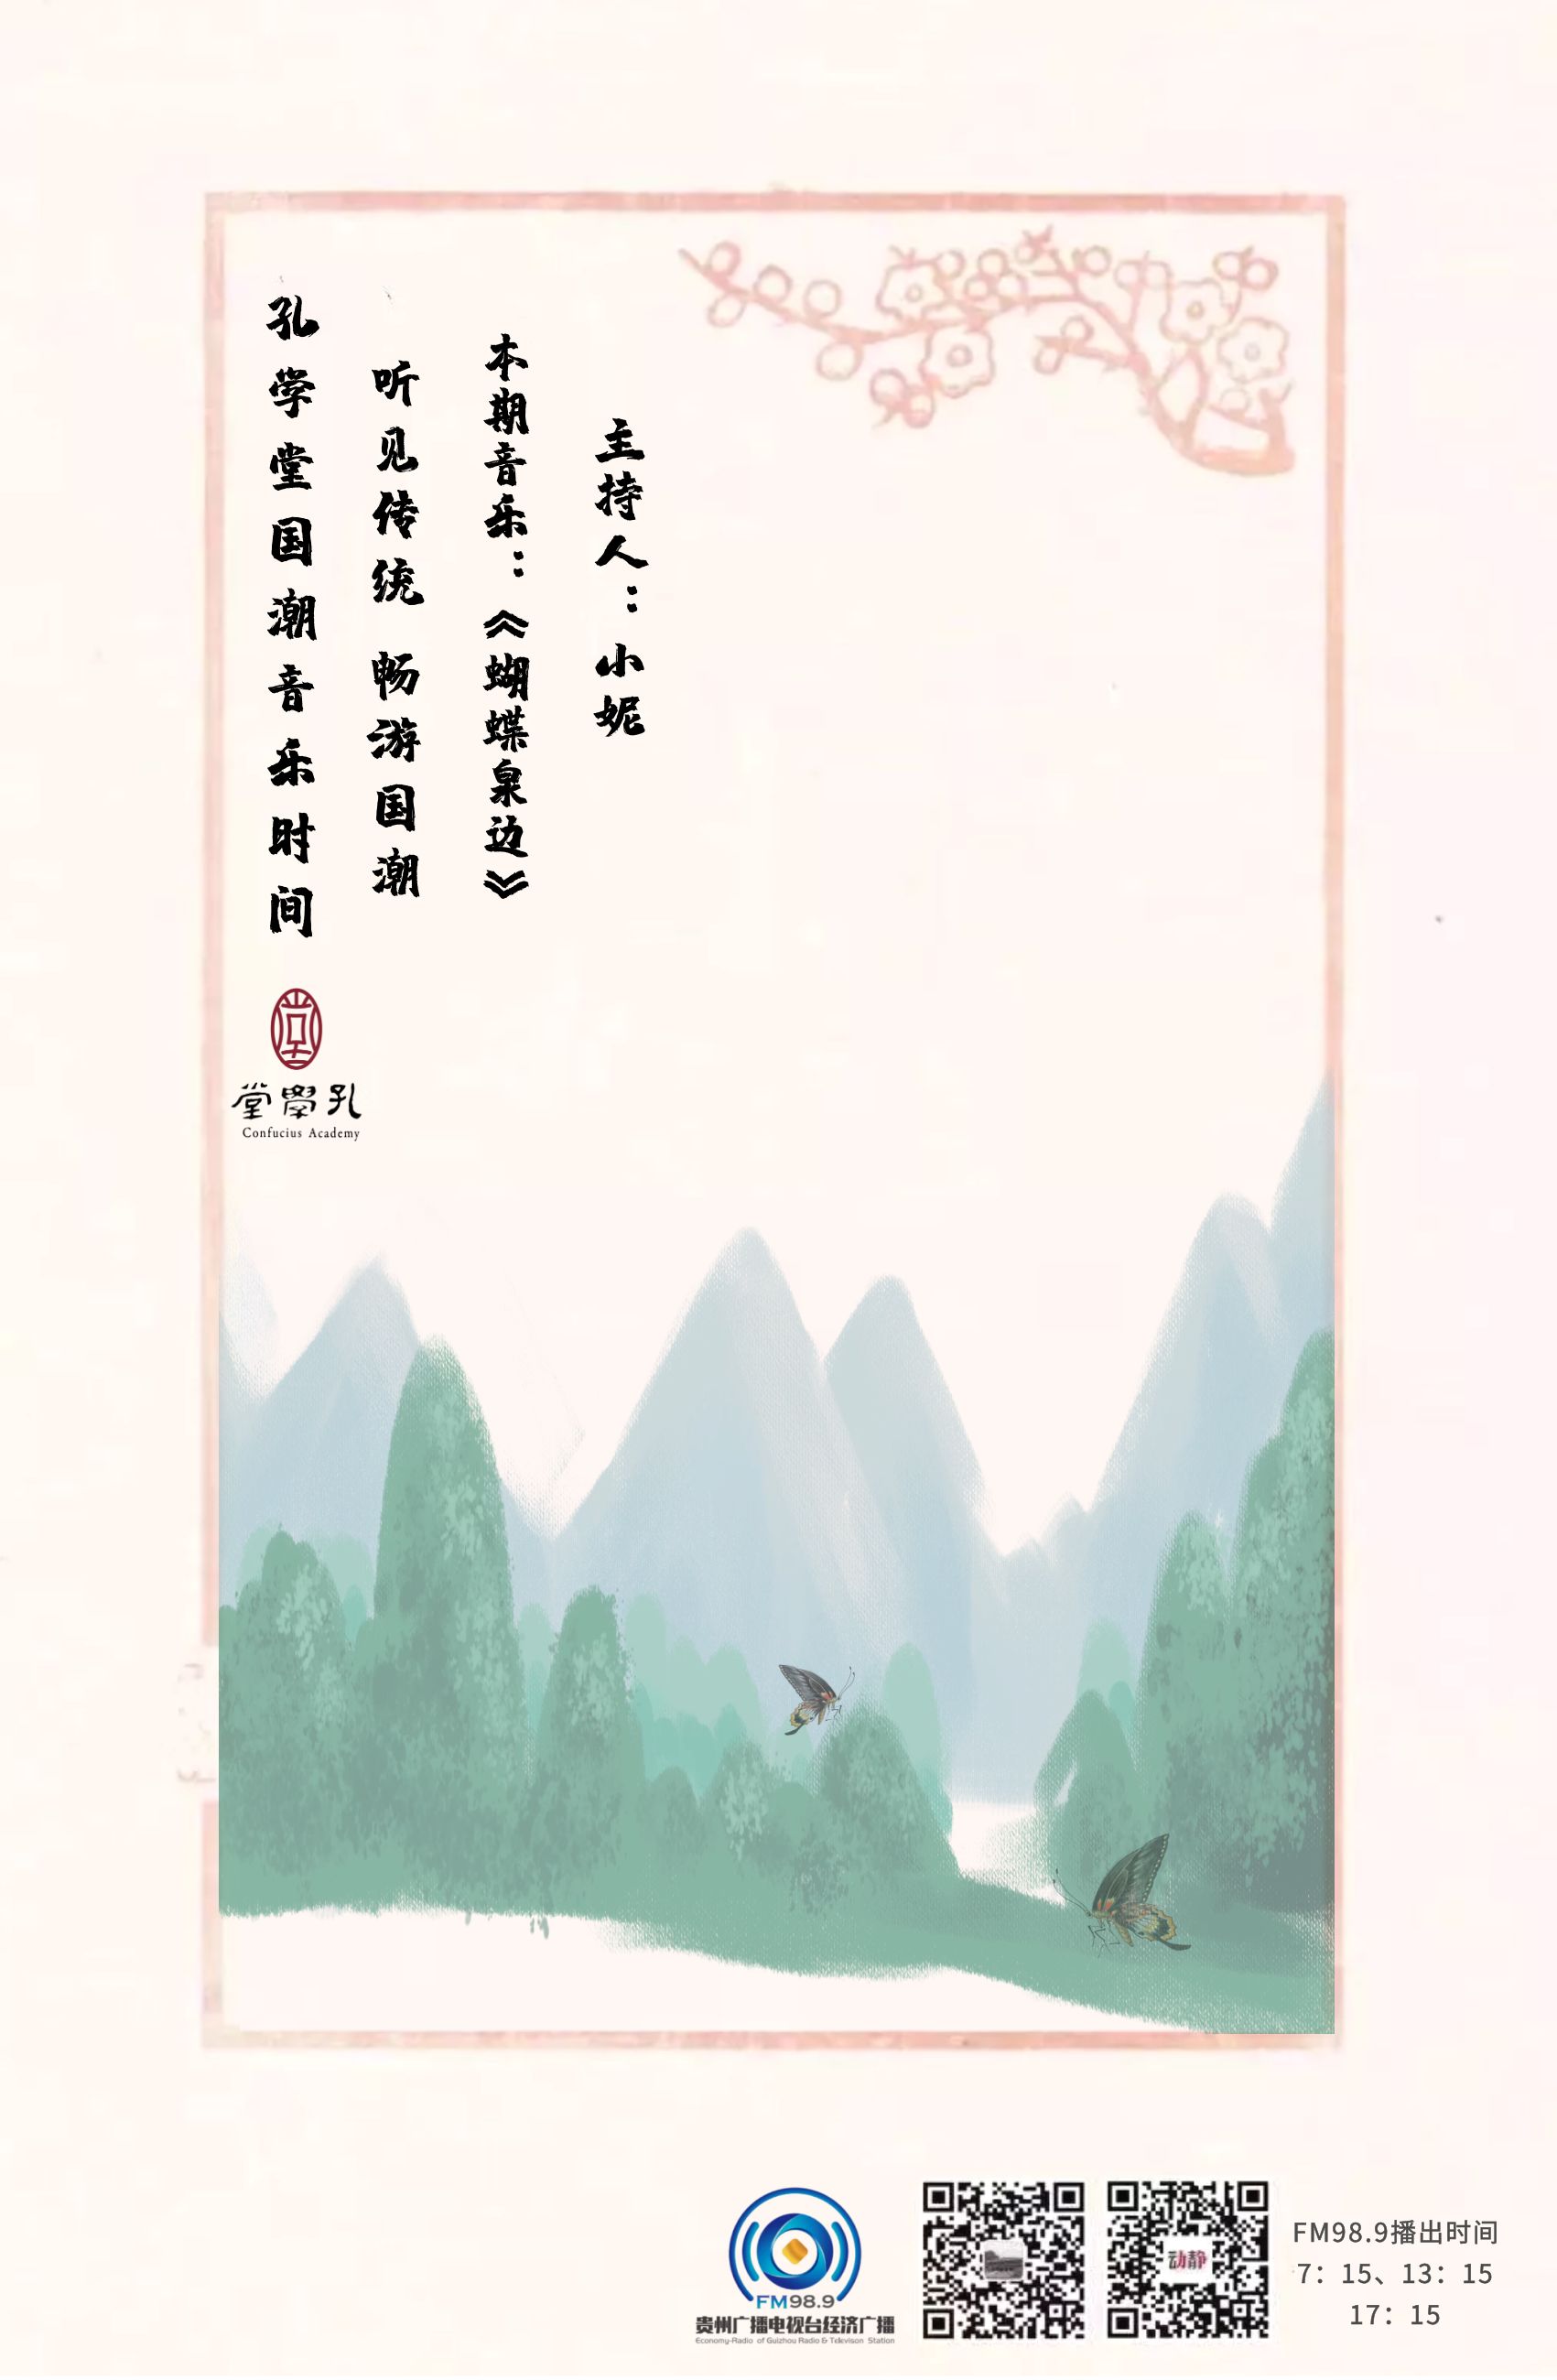 孔学堂国潮音乐时间
听见传统 畅游国潮
本期音乐：《蝴蝶泉边》
主持人：小妮
堂
堂學孔
Confucius Academy
FM98.9
贵州广播电视台经济广播
Economy-Radio of Guizhou Radio & Televison Station
动静
FM98.9播出时间
7：15、13：15
17：15